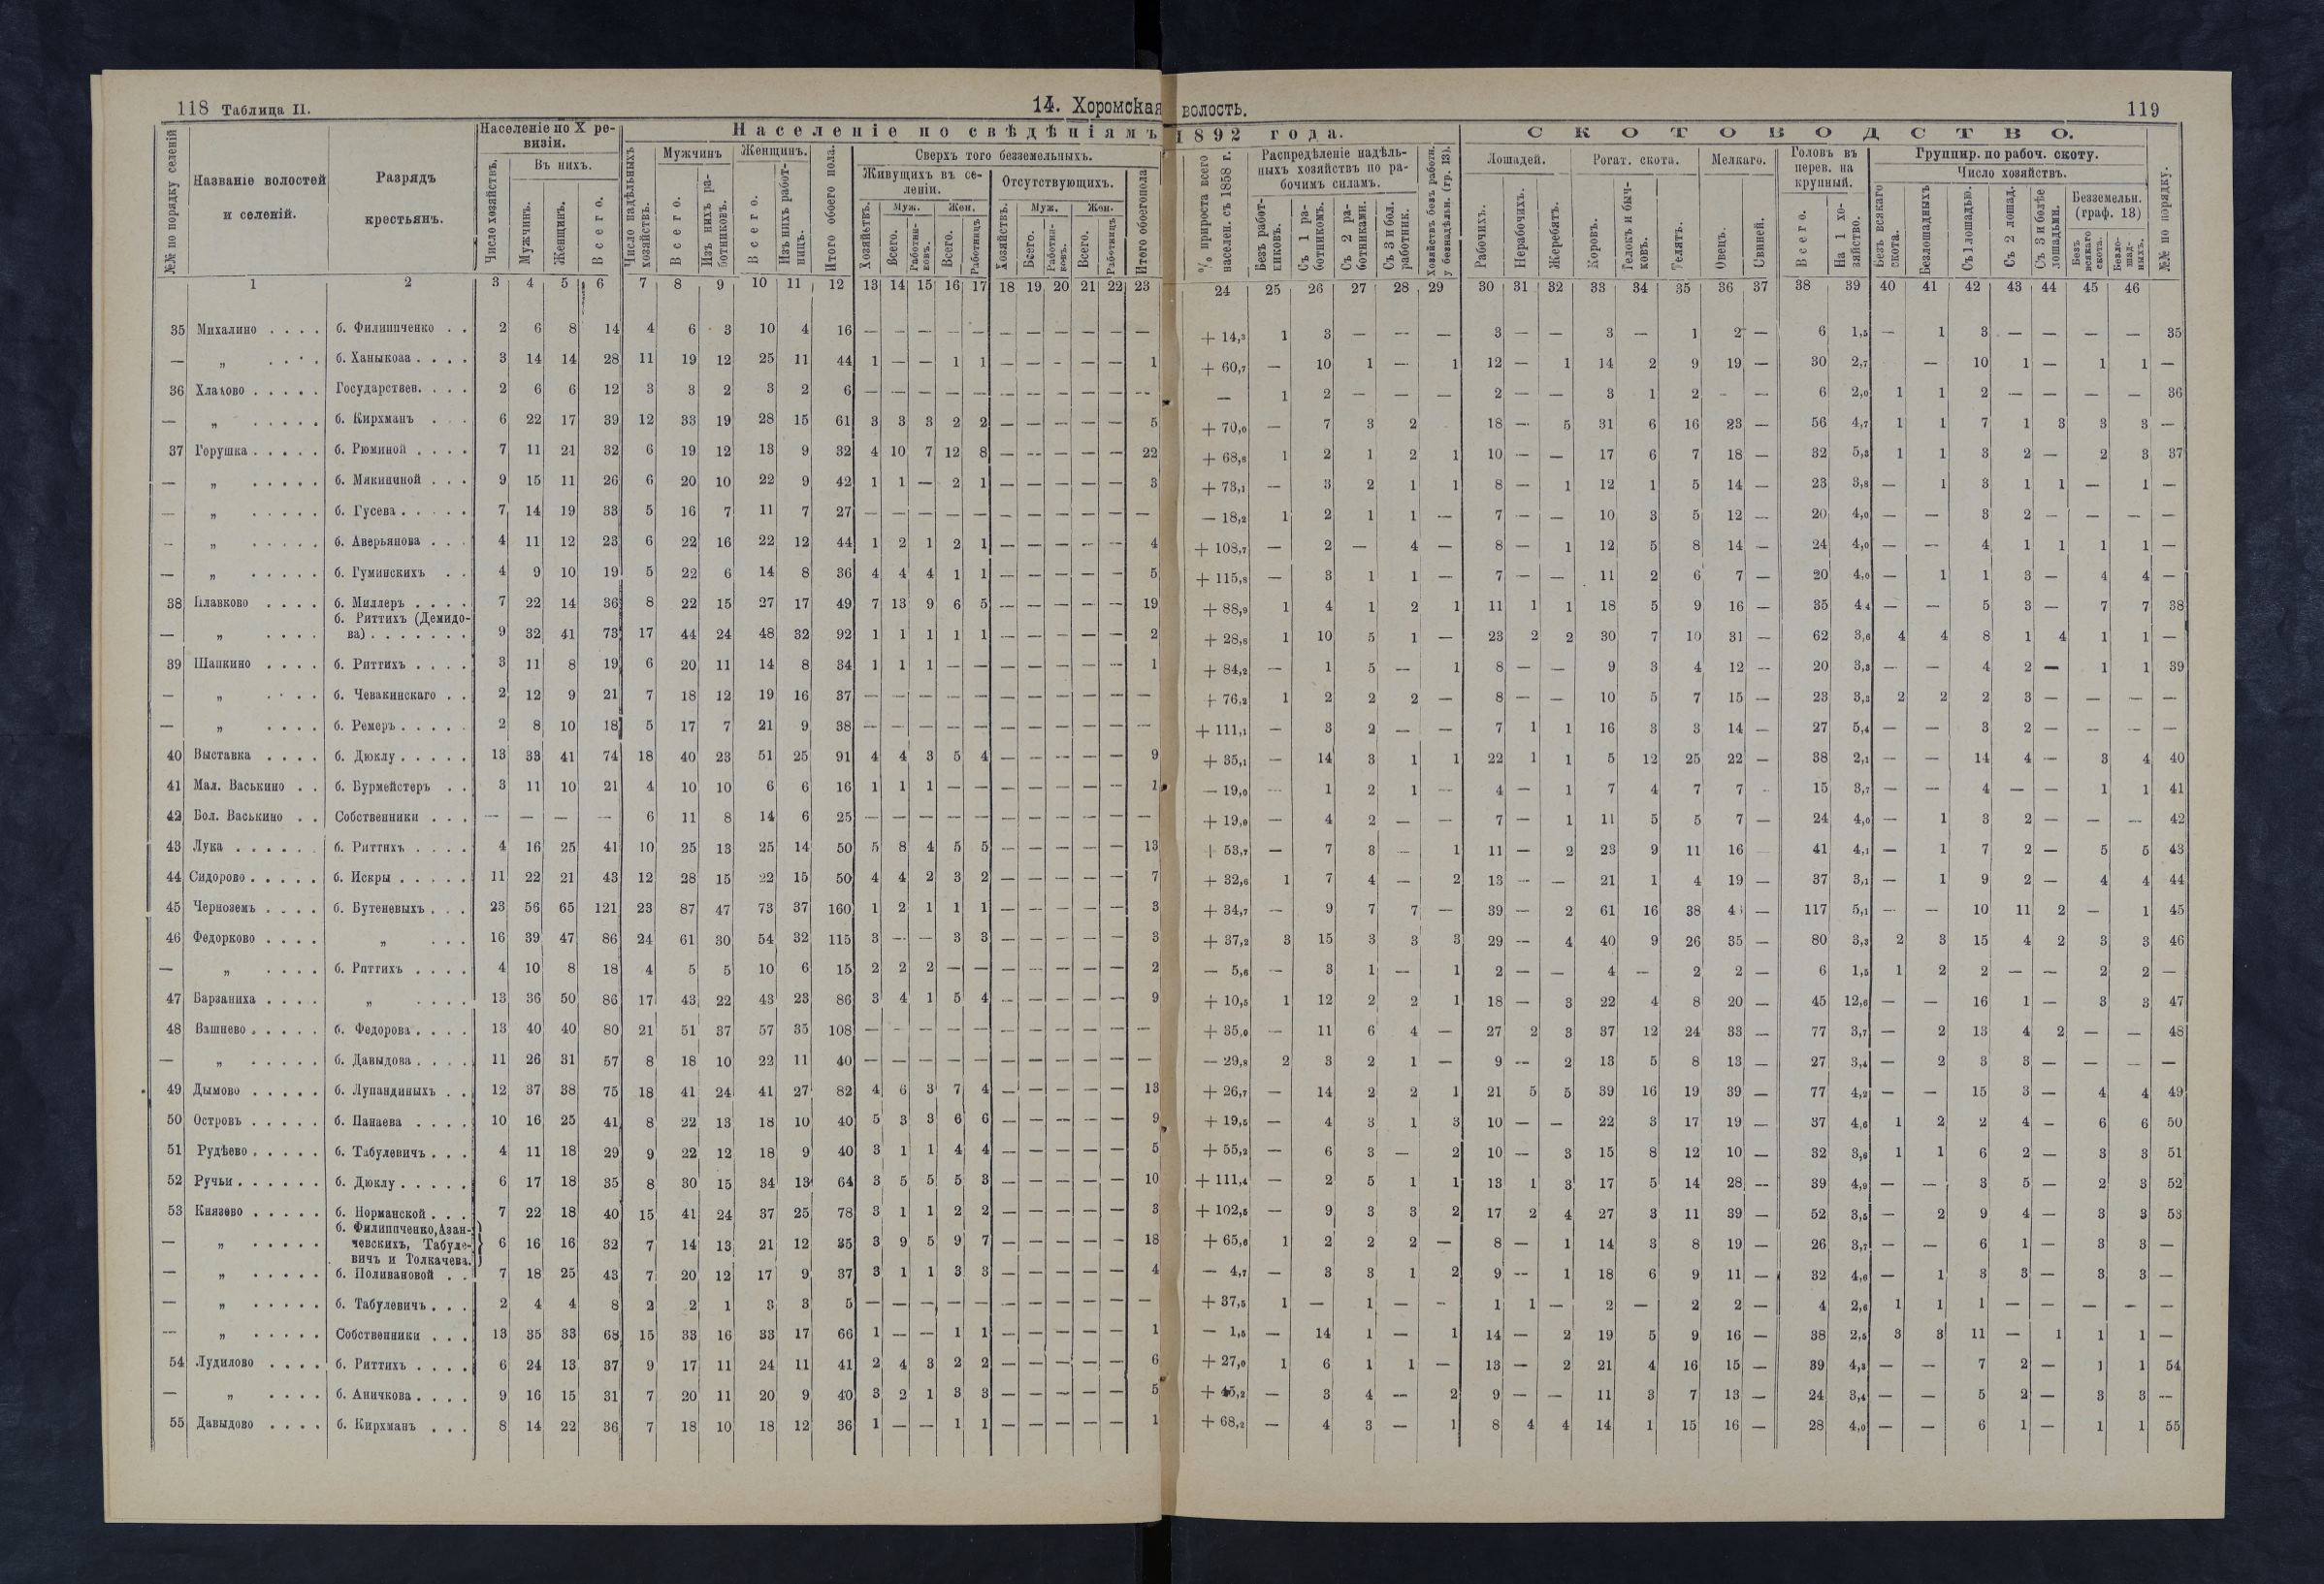 118 Таблица II.
14. Хоромская волость.
119
№№ по порядку селеній
Названіе волостей и селеній.
Разрядъ крестьянъ.
Населеніе по X ревизіи.
Число хозяйствъ.
Въ нихъ.
Мужчинъ.
Женщинъ.
Всего.
Населеніе по свѣдѣніямъ 1892 года.
Число надѣльныхъ хозяйствъ.
Мужчинъ
Всего.
Изъ нихъ работниковъ.
Женщинъ.
Всего.
Изъ нихъ работницъ.
Итого обоего пола.
Сверхъ того безземельныхъ.
Живущихъ въ селеніи.
Хозяйствъ.
Муж.
Всего.
Работниковъ.
Жен.
Всего.
Работницъ
Отсутствующихъ.
Хозяйствъ.
Муж.
Всего.
Работниковъ.
Жен.
Всего.
Работницъ
Итого обоего пола
% прироста всего населен. съ 1858 г.
Распредѣленіе надѣльныхъ хозяйствъ по рабочимъ силамъ.
Безъ работниковъ.
Съ 1 работникомъ.
Съ 2 работниками.
Съ 3 и бол. работник.
Хозяйствъ безъ работн. у безнадѣльн. (гр. 13).
СКОТОВОДСТВО.
Лошадей.
Рабочихъ.
Нерабочихъ.
Жеребятъ.
Рогат. скота.
Коровъ.
Телокъ и бычковъ.
Телятъ.
Мелкаго.
Овецъ.
Свиней.
Головъ въ перев. на крупный.
Всего.
На 1 хозяйство.
Группир. по рабоч. скоту.
Число хозяйствъ.
Безъ всякаго скота.
Безлошадныхъ
Съ 1 лошадью.
Съ 2 лошад.
Съ 3 и болѣе лошадьми.
Безземельн. (граф. 13)
Безъ всякаго скота.
Безлошадныхъ.
№№ по порядку.
1 2 3 4 5 6 7 8 9 10 11 12 13 14 15 16 17 18 19 20 21 22 23 24 25 26 27 28 29 30 31 32 33 34 35 36 37 38 39 40 41 42 43 44 45 46
35 Михалино . . . . б. Филипченко . . 2 6 8 14 4 6 3 10 4 16 — — — — — — — — — — — + 14,3 1 3 — — — 3 — — 3 — 1 2 — 6 1,5 — 1 3 — — — — 35
— „ . . . . б. Ханыкова . . . . 3 14 14 28 11 19 12 25 11 44 1 — — 1 1 — — — — — 1 + 60,7 — 10 1 — 1 12 — 1 14 2 9 19 — 30 2,7 — 10 1 — 1 1 —
36 Хлапово . . . . . Государствен. . . . 2 6 6 12 3 3 2 3 2 6 — — — — — — — — — — — — 1 2 — — — 2 — — 3 1 2 - — 6 2,0 1 1 2 — — — — 36
— „ . . . . . б. Кирхманъ . . . 6 22 17 39 12 33 19 28 15 61 3 3 3 2 2 — — — — — 5 + 70,0 — 7 3 2 18 — 5 31 6 16 23 — 56 4,7 1 1 7 1 3 3 3 —
37 Горушка . . . . . б. Рюминой . . . . 7 11 21 32 6 19 12 13 9 32 4 10 7 12 8 — — — — — 22 + 68,8 1 2 1 2 1 10 — — 17 6 7 18 — 32 5,3 1 1 3 2 — 2 3 37
— „ . . . . . б. Мякининой . . . 9 15 11 26 6 20 10 22 9 42 1 1 — 2 1 — — — — — 3 + 73,1 — 3 2 1 1 8 — 1 12 1 5 14 — 23 3,8 — 1 3 1 1 — 1 —
— „ . . . . . б. Гусева . . . . . 7 14 19 33 5 16 7 11 7 27 — — — — — — — — — — — — 18,2 1 2 1 1 — 7 — — 10 3 5 12 — 20 4,0 — — 3 2 — — — —
— „ . . . . . б. Аверьянова . . . 4 11 12 23 6 22 16 22 12 44 1 2 1 2 1 — — — — — 4 + 108,7 — 2 — 4 — 8 — 1 12 5 8 14 — 24 4,0 — — 4 1 1 1 1 —
— „ . . . . . б. Гуминскихъ . . 4 9 10 19 5 22 6 14 8 36 4 4 4 1 1 — — — — — 5 + 115,8 — 3 1 1 — 7 — — 11 2 6 7 — 20 4,0 — 1 1 3 — 4 4 —
38 Плавково . . . . б. Миллеръ . . . . 7 22 14 36 8 22 15 27 17 49 7 13 9 6 5 — — — — — 19 + 88,9 1 4 1 2 1 11 1 1 18 5 9 16 — 35 4,4 — — 5 3 — 7 7 38
— „ . . . . б. Риттихъ (Демидова) . . . . . . . 9 32 41 73 17 44 24 48 32 92 1 1 1 1 1 — — — — — 2 + 28,8 1 10 5 1 — 23 2 2 30 7 10 31 — 62 3,6 4 4 8 1 4 1 1 —
39 Шапкино . . . . б. Риттихъ . . . . 3 11 8 19 6 20 11 14 8 34 1 1 1 — — — — — — — 1 + 84,2 — 1 5 — 1 8 — — 9 3 4 12 — 20 3,3 — — 4 2 — 1 1 39
— „ . . . . б. Чевакинскаго . . 2 12 9 21 7 18 12 19 16 37 — — — — — — — — — — — + 76,2 1 2 2 2 — 8 — — 10 5 7 15 — 23 3,3 2 2 2 3 — — — —
— „ . . . . б. Ремеръ . . . . . 2 8 10 18 5 17 7 21 9 38 — — — — — — — — — — — + 111,1 — 3 2 — — 7 1 1 16 3 3 14 — 27 5,4 — — 3 2 — — — —
40 Выставка . . . . б. Дюклу . . . . . 13 33 41 74 18 40 23 51 25 91 4 4 3 5 4 — — — — — 9 + 35,1 — 14 3 1 1 22 1 1 5 12 25 22 — 38 2,1 — — 14 4 — 3 4 40
41 Мал. Васькино . . б. Бурмейстеръ . . 3 11 10 21 4 10 10 6 6 16 1 1 1 — — — — — — — 1 — 19,0 — 1 2 1 — 4 — 1 7 4 7 7 - 15 3,7 — — 4 — — 1 1 41
42 Бол. Васькино . . Собственники . . . — — — — 6 11 8 14 6 25 — — — — — — — — — — — + 19,0 — 4 2 — — 7 — 1 11 5 5 7 — 24 4,0 — 1 3 2 — — — 42
43 Лука . . . . . . б. Риттихъ . . . . 4 16 25 41 10 25 13 25 14 50 5 8 4 5 5 — — — — — 13 + 53,7 — 7 3 — 1 11 — 2 23 9 11 16 — 41 4,1 — 1 7 2 — 5 5 43
44 Сидорово . . . . . б. Искры . . . . . 11 22 21 43 12 28 15 22 15 50 4 4 2 3 2 — — — — — 7 + 32,6 1 7 4 — 2 13 — — 21 1 4 19 — 37 3,1 — 1 9 2 — 4 4 44
45 Черноземь . . . . б. Бутеневыхъ . . . 23 56 65 121 23 87 47 73 37 160 1 2 1 1 1 — — — — — 3 + 34,7 — 9 7 7 — 39 — 2 61 16 38 — 117 5,1 — — 10 11 2 — 1 45
46 Федорково . . . . „ . . . 16 39 47 86 24 61 30 54 32 115 3 — — 3 3 — — — — — 3 + 37,2 3 15 3 3 3 29 — 4 40 9 26 35 — 80 3,3 2 3 15 4 2 3 3 46
— „ . . . . б. Риттихъ . . . . 4 10 8 18 4 5 5 10 6 15 2 2 2 — — — — — — — 2 — 5,6 — 3 1 — 1 2 — — 4 — 2 2 — 6 1,5 1 2 2 — — 2 2 —
47 Барзаниха . . . . „ . . . . 13 36 50 86 17 43 22 43 23 86 3 4 1 5 4 — — — — — 9 + 10,5 1 12 2 2 1 18 — 3 22 4 8 20 — 45 12,6 — — 16 1 — 3 3 47
48 Вашнево . . . . . б. Федорова . . . . 13 40 40 80 21 51 37 57 35 108 — — — — — — — — — — — + 35,0 — 11 6 4 — 27 2 3 37 12 24 33 — 77 3,7 — 2 13 4 2 — — 48
— „ . . . . . б. Давыдова . . . . 11 26 31 57 8 18 10 22 11 40 — — — — — — — — — — — — 29,8 2 3 2 1 — 9 — 2 13 5 8 13 — 27 3,4 — 2 3 3 — — — —
49 Дымово . . . . . б. Лупандиныхъ . . 12 37 38 75 18 41 24 41 27 82 4 6 3 7 4 — — — — — 13 + 26,7 — 14 2 2 1 21 5 5 39 16 19 39 — 77 4,2 — — 15 3 — 4 4 49
50 Островъ . . . . . б. Панаева . . . . 10 16 25 41 8 22 13 18 10 40 5 3 3 6 6 — — — — — 9 + 19,5 — 4 3 1 3 10 — — 22 3 17 19 — 37 4,6 1 2 2 4 — 6 6 50
51 Рудѣево . . . . . б. Табулевичъ . . . 4 11 18 29 9 22 12 18 9 40 3 1 1 4 4 — — — — — 5 + 55,2 — 6 3 — 2 10 — 3 15 8 12 10 — 32 3,6 1 1 6 2 — 3 3 51
52 Ручьи . . . . . . б. Дюклу . . . . . 6 17 18 35 8 30 15 34 13 64 3 5 5 5 3 — — — — — 10 + 111,4 — 2 5 1 1 13 1 3 17 5 14 28 — 39 4,9 — — 3 5 — 2 3 52
53 Князево . . . . . б. Норманской . . . 7 22 18 40 15 41 24 37 25 78 3 1 1 2 2 — — — — — 3 + 102,5 — 9 3 3 2 17 2 4 27 3 11 39 — 52 3,5 — 2 9 4 — 3 3 53
— „ . . . . . б. Филипченко, Азанчевскихъ, Табулевичъ и Толкачева. 6 16 16 32 7 14 13 21 12 35 3 9 5 9 7 — — — — — 18 + 65,6 1 2 2 2 — 8 — 1 14 3 8 19 — 26 3,7 — — 6 1 — 3 3 —
— „ . . . . . б. Поливановой . . 7 18 25 43 7 20 12 17 9 37 3 1 1 3 3 — — — — — 4 — 4,7 — 3 3 1 2 9 — 1 18 6 9 11 — 32 4,6 — 1 3 3 — 3 3 —
— „ . . . . . б. Табулевичъ . . . 2 4 4 8 2 2 1 3 3 5 — — — — — — — — — — — + 37,5 1 — 1 — — 1 1 — 2 — 2 2 — 4 2,6 1 1 1 — — — — —
— „ . . . . . Собственники . . . 13 35 33 68 15 33 16 33 17 66 1 — — 1 1 — — — — — 1 — 1,5 — 14 1 — 1 14 — 2 19 5 9 16 — 38 2,5 3 3 11 — 1 1 1 —
54 Лудилово . . . . б. Риттихъ . . . . 6 24 13 37 9 17 11 24 11 41 2 4 3 2 2 — — — — — 6 + 27,0 1 6 1 1 — 13 — 2 21 4 16 15 — 39 4,3 — — 7 2 — 1 1 54
— „ . . . . б. Аничкова . . . . 9 16 15 31 7 20 11 20 9 40 3 2 1 3 3 — — — — — 5 + 45,2 — 3 4 — 2 9 — — 11 3 7 13 — 24 3,4 — — 5 2 — 3 3 —
55 Давыдово . . . . б. Кирхманъ . . . 8 14 22 36 7 18 10 18 12 36 1 — — 1 1 — — — — — 1 + 68,2 — 4 3 — 1 8 4 4 14 1 15 16 — 28 4,0 — — 6 1 — 1 1 55